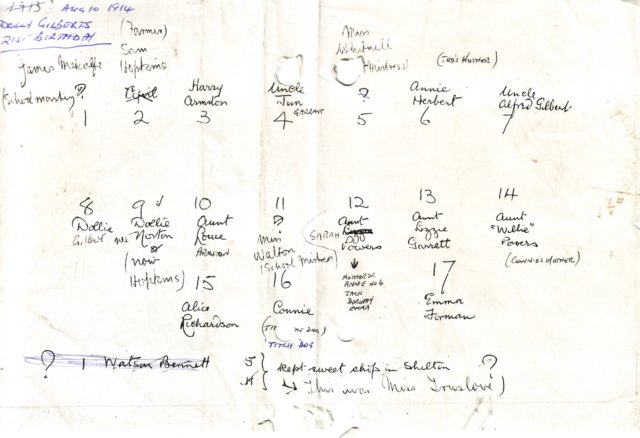 1913? Aug 10 1914
Dolly Gilberts
21st Birthday
(Farmer)
Sam
Hopkins
Miss
Mistress)
(Ted's Mother)
James Metcalfe
(School master) ?
Harry
Uncle
Jim
Garratt
?
Annie
Herbert
Uncle
Alfred Gilbert
1 2 3 4 5 6 7
8 9 10 11 12 13 14
Dollie
Gilbert
Dollie
née Norton
(now
Hopkins)
Aunt
Louie
?
Miss
Walton
(School Mistress)
Aunt
Sarah
Powers
Mother of
Annie No 6
Jack
Dorothy
Emma
Aunt
Lizzie
Garrett
Aunt
"Willie"
Powers
(Connie's Mother)
15 16 17
Alice
Richardson
Connie
(Tit the dog)
Titch dog
Emma
Forman
? 1 Watson Bennett
5 } kept sweet shop in Shelton ?
11 } → This was Miss Truslove)